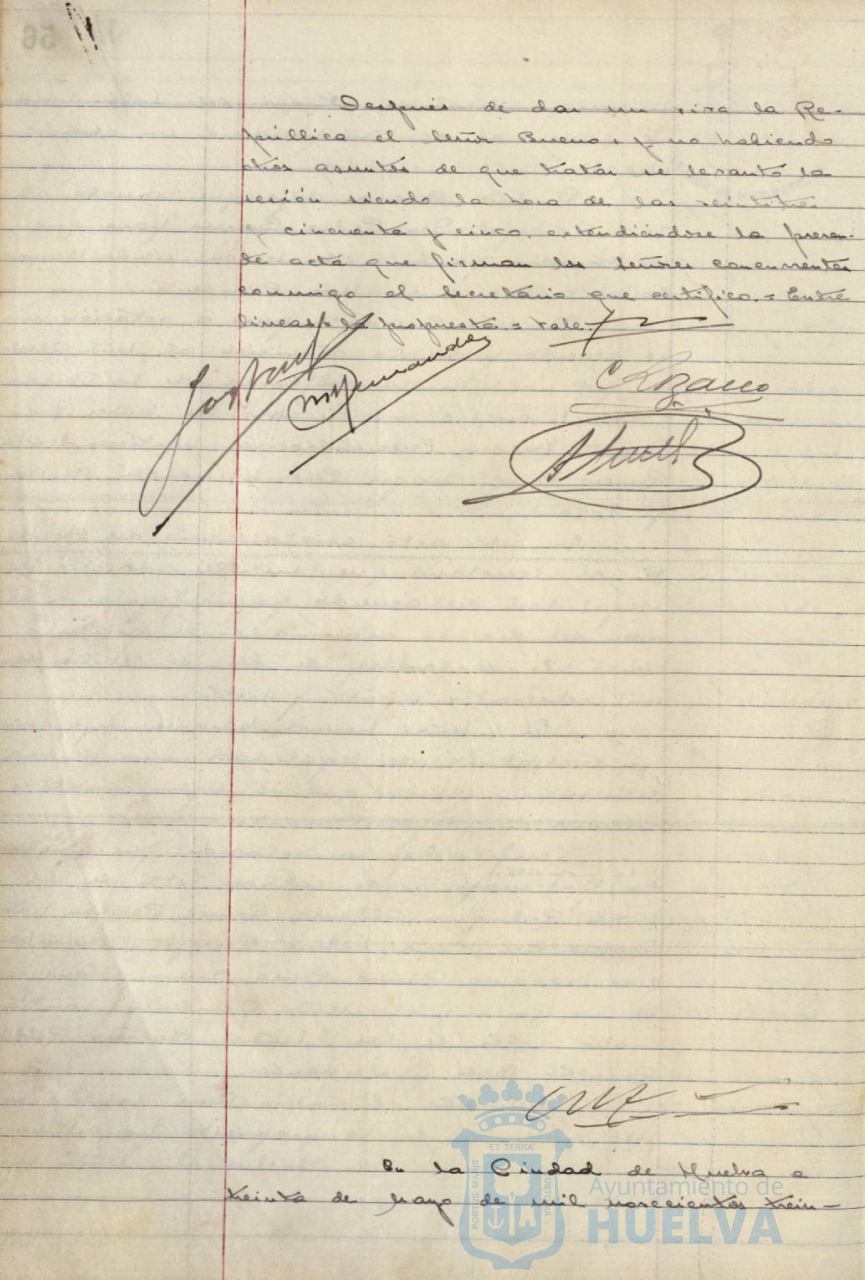 Después de dar un viva la Re-
pública el Señor Bueno, y no habiendo
otros asuntos de que tratar se levantó la
sesión siendo la hora de las veintitres
y cincuenta y cinco, extendiéndose la presen-
te acta que firman los Señores concurrentes
conmigo el Secretario que certifico.= Entre
lineas: la propuesta = Vale
MHernandez
C Lozano
En la Ciudad de Huelva a
treinta de Mayo de mil novecientos trein-
ET TERRÆ
PORTUS MARIS
CUSTODIA
Ayuntamiento de
HUELVA